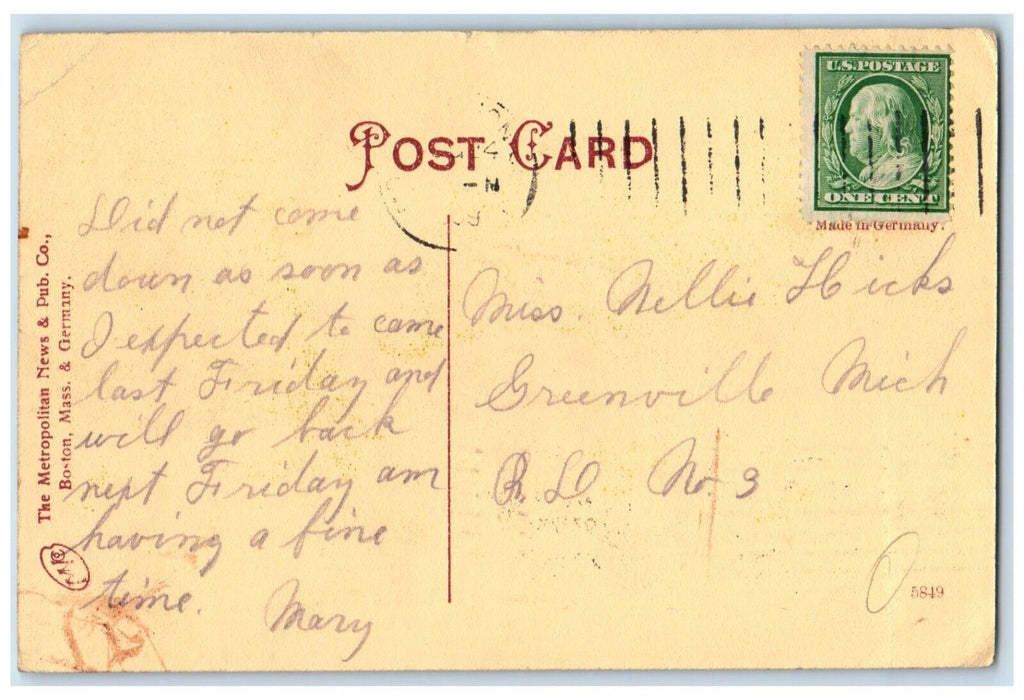 POST CARD
U.S. POSTAGE
ONE CENT
Made in Germany.
The Metropolitan News & Pub. Co.,
Boston, Mass. & Germany.
Did not come
down as soon as
I expected to came
last Friday and
will go back
next Friday am
having a fine
time.
Mary
Miss. Nellie Hicks
Greenville Mich
R. D No. 3
5849